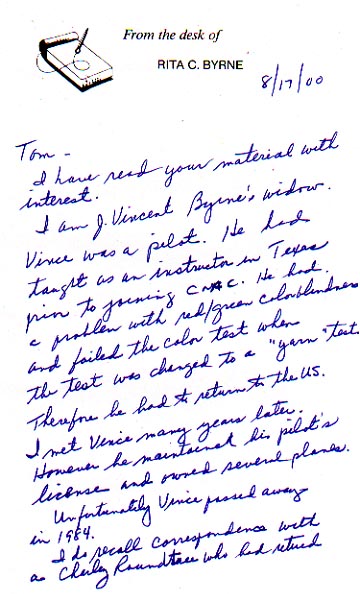 From the desk of
RITA C. BYRNE
8/17/00
Tom -
I have read your material with
interest.
I am J. Vincent Byrne's widow.
Vince was a pilot. He had
taught as an instructor in Texas
prior to joining CNAC. He had
a problem with red/green colorblindness
and failed the color test when
the test was changed to a "yarn" test.
Therefore he had to return to the US.
I met Vince many years later.
However he maintained his pilot's
license and owned several planes.
Unfortunately Vince passed away
in 1984.
I do recall correspondence with
a Charley who had retired